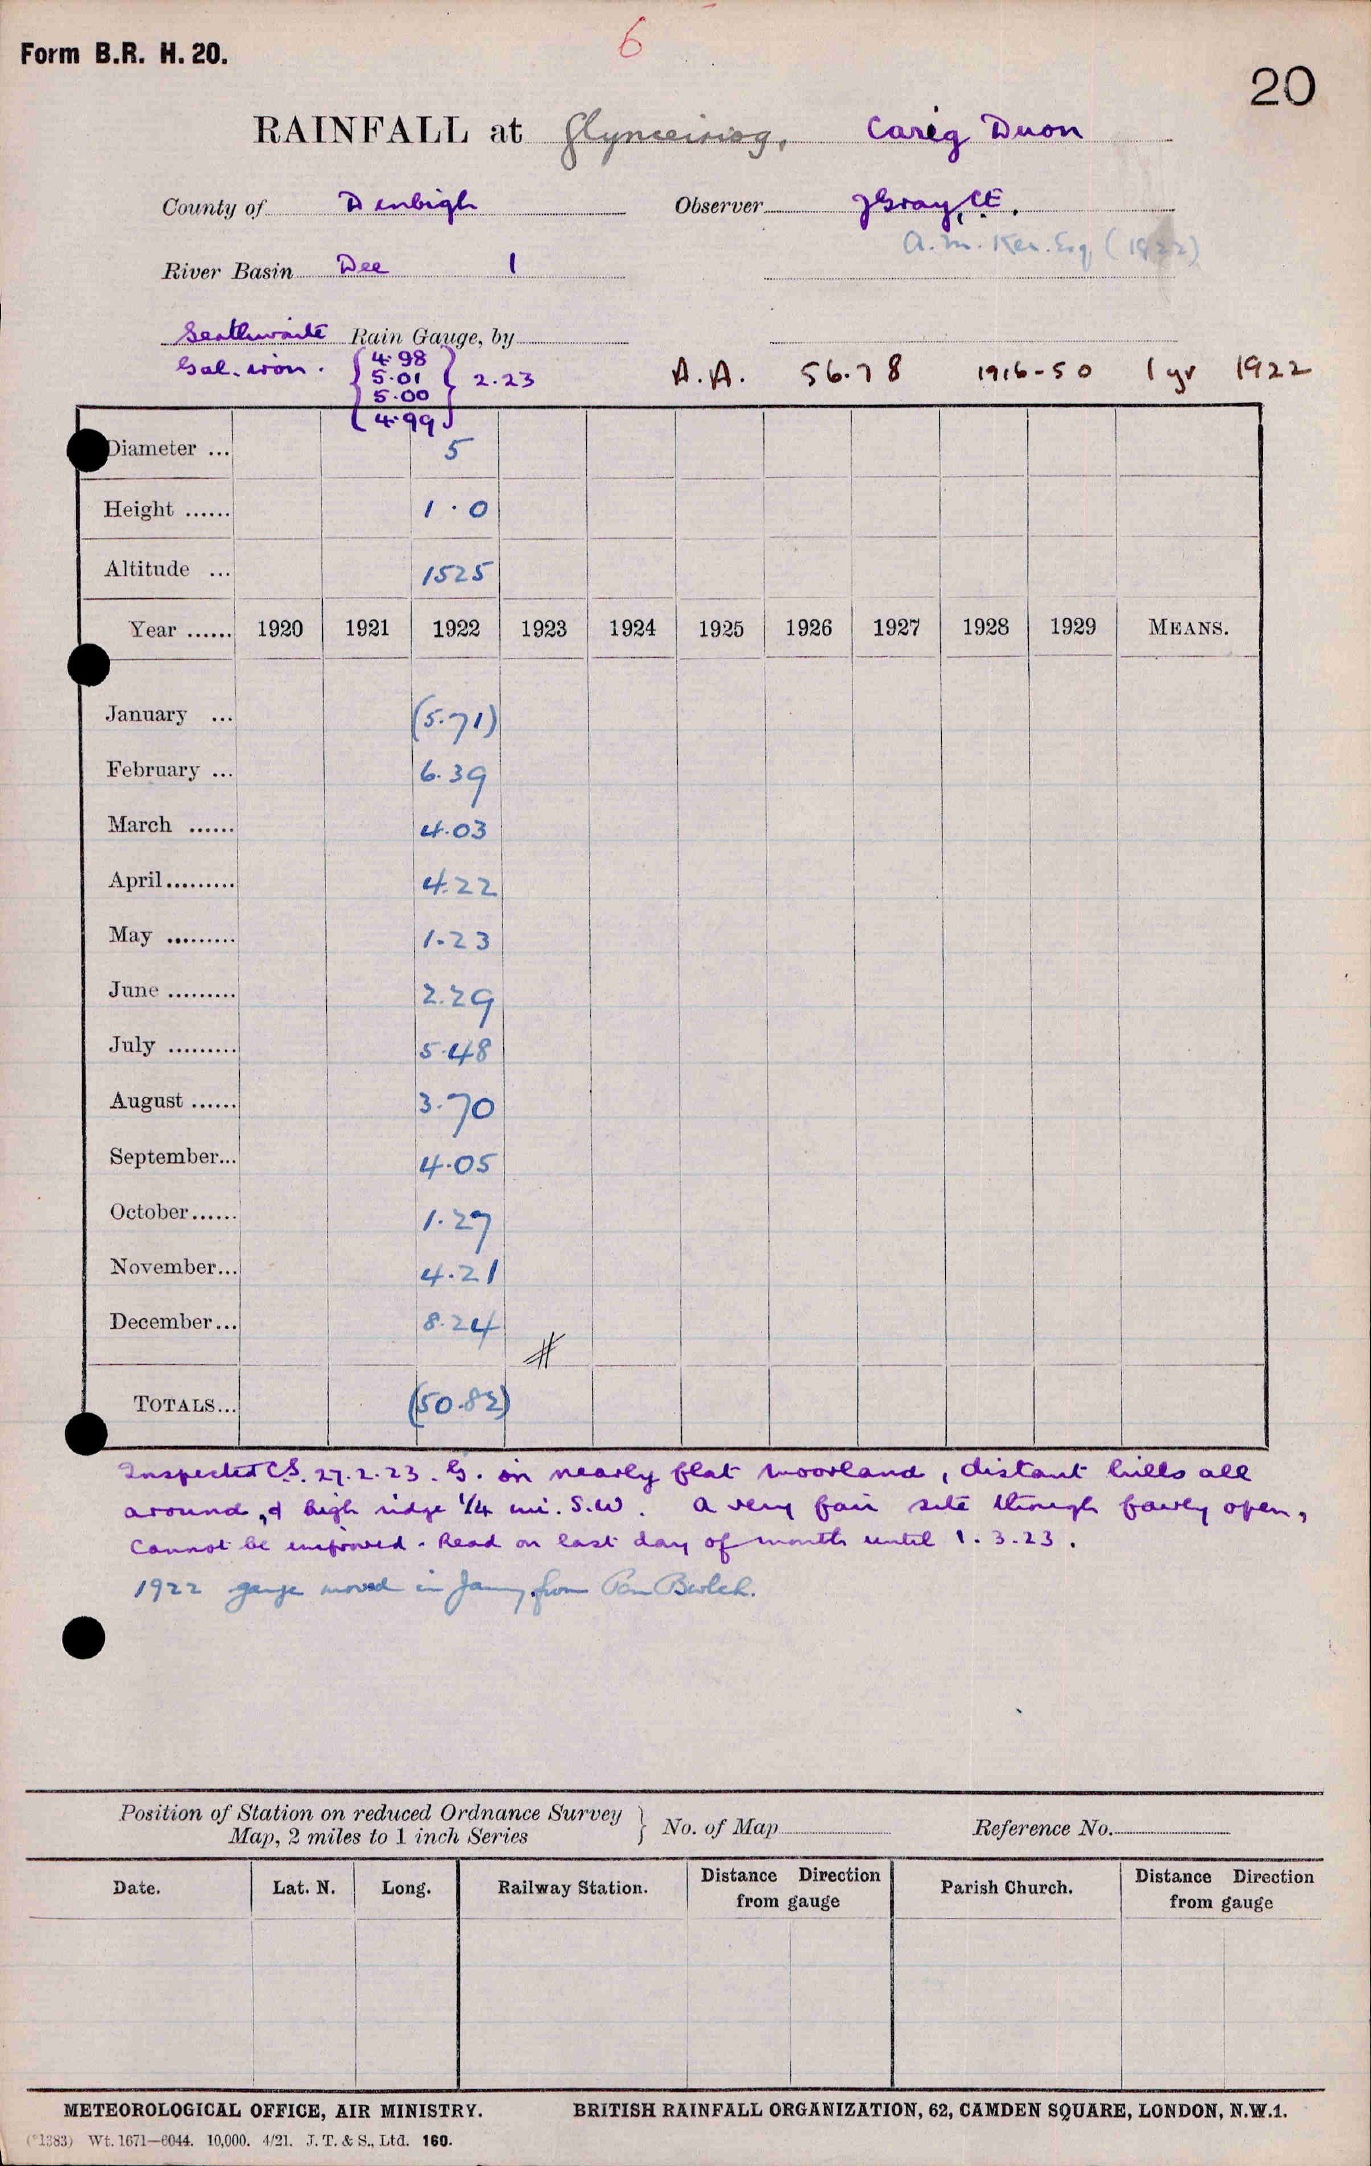 6
Form B.R. H. 20.
20
RAINFALL at Glynceiriog, Careg Duon
County of Denbigh Observer J Gray, C.E.
A. M. Ker. Esq (1922)
River Basin Dee 1
Seathwaite Rain Gauge, by
Gal. iron. { 4.98 5.01 5.00 4.99 } 2.23 A.A. 56.78 1916-50 1 yr 1922
Diameter ... 5
Height ...... 1.0
Altitude ... 1525
Year ...... 1920 1921 1922 1923 1924 1925 1926 1927 1928 1929 MEANS.
January ... (5.71)
February ... 6.39
March ...... 4.03
April......... 4.22
May ......... 1.23
June ......... 2.29
July ......... 5.48
August ...... 3.70
September... 4.05
October...... 1.27
November... 4.21
December... 8.24
TOTALS... (50.82)
Inspected C.S. 27.2.23. G. on nearly flat moorland, distant hills all
around, & high ridge 1/4 mi. S.W. A very fair site though fairly open,
cannot be improved. Read on last day of month until 1.3.23.
1922 gauge moved in Jany. from Pen Bwlch.
Position of Station on reduced Ordnance Survey
Map, 2 miles to 1 inch Series } No. of Map Reference No.
Date. Lat. N. Long. Railway Station. Distance Direction from gauge Parish Church. Distance Direction from gauge
METEOROLOGICAL OFFICE, AIR MINISTRY. BRITISH RAINFALL ORGANIZATION, 62, CAMDEN SQUARE, LONDON, N.W.1.
(*1383) Wt. 1671—6044. 10,000. 4/21. J. T. & S., Ltd. 160.